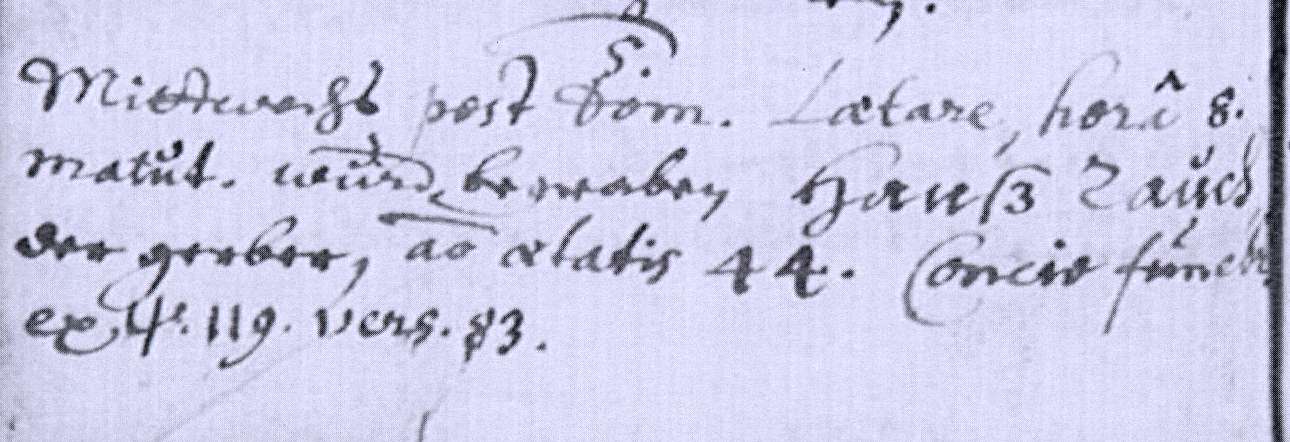 Mittwochs post Dom. Lætare, horâ 8.
matut. würd begraben Hanß Rauch
der gerber, aõ ætatis 44. Concio funebr.
ex ψ. 119. vers. 83.